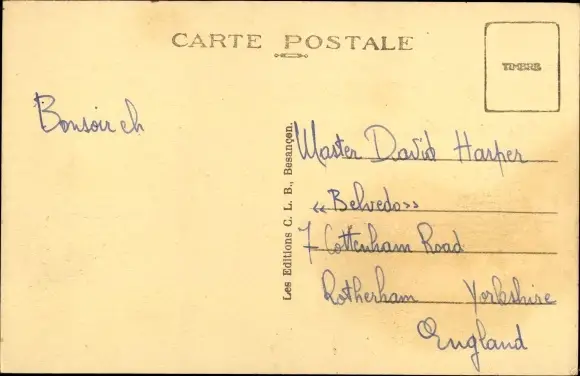 CARTE POSTALE
TIMBRE
Bonsoir eh
Les Editions C. L. B., Besançon.
Master David Harper
«Belvedo»
7 Cottenham Road
Rotherham Yorkshire
England